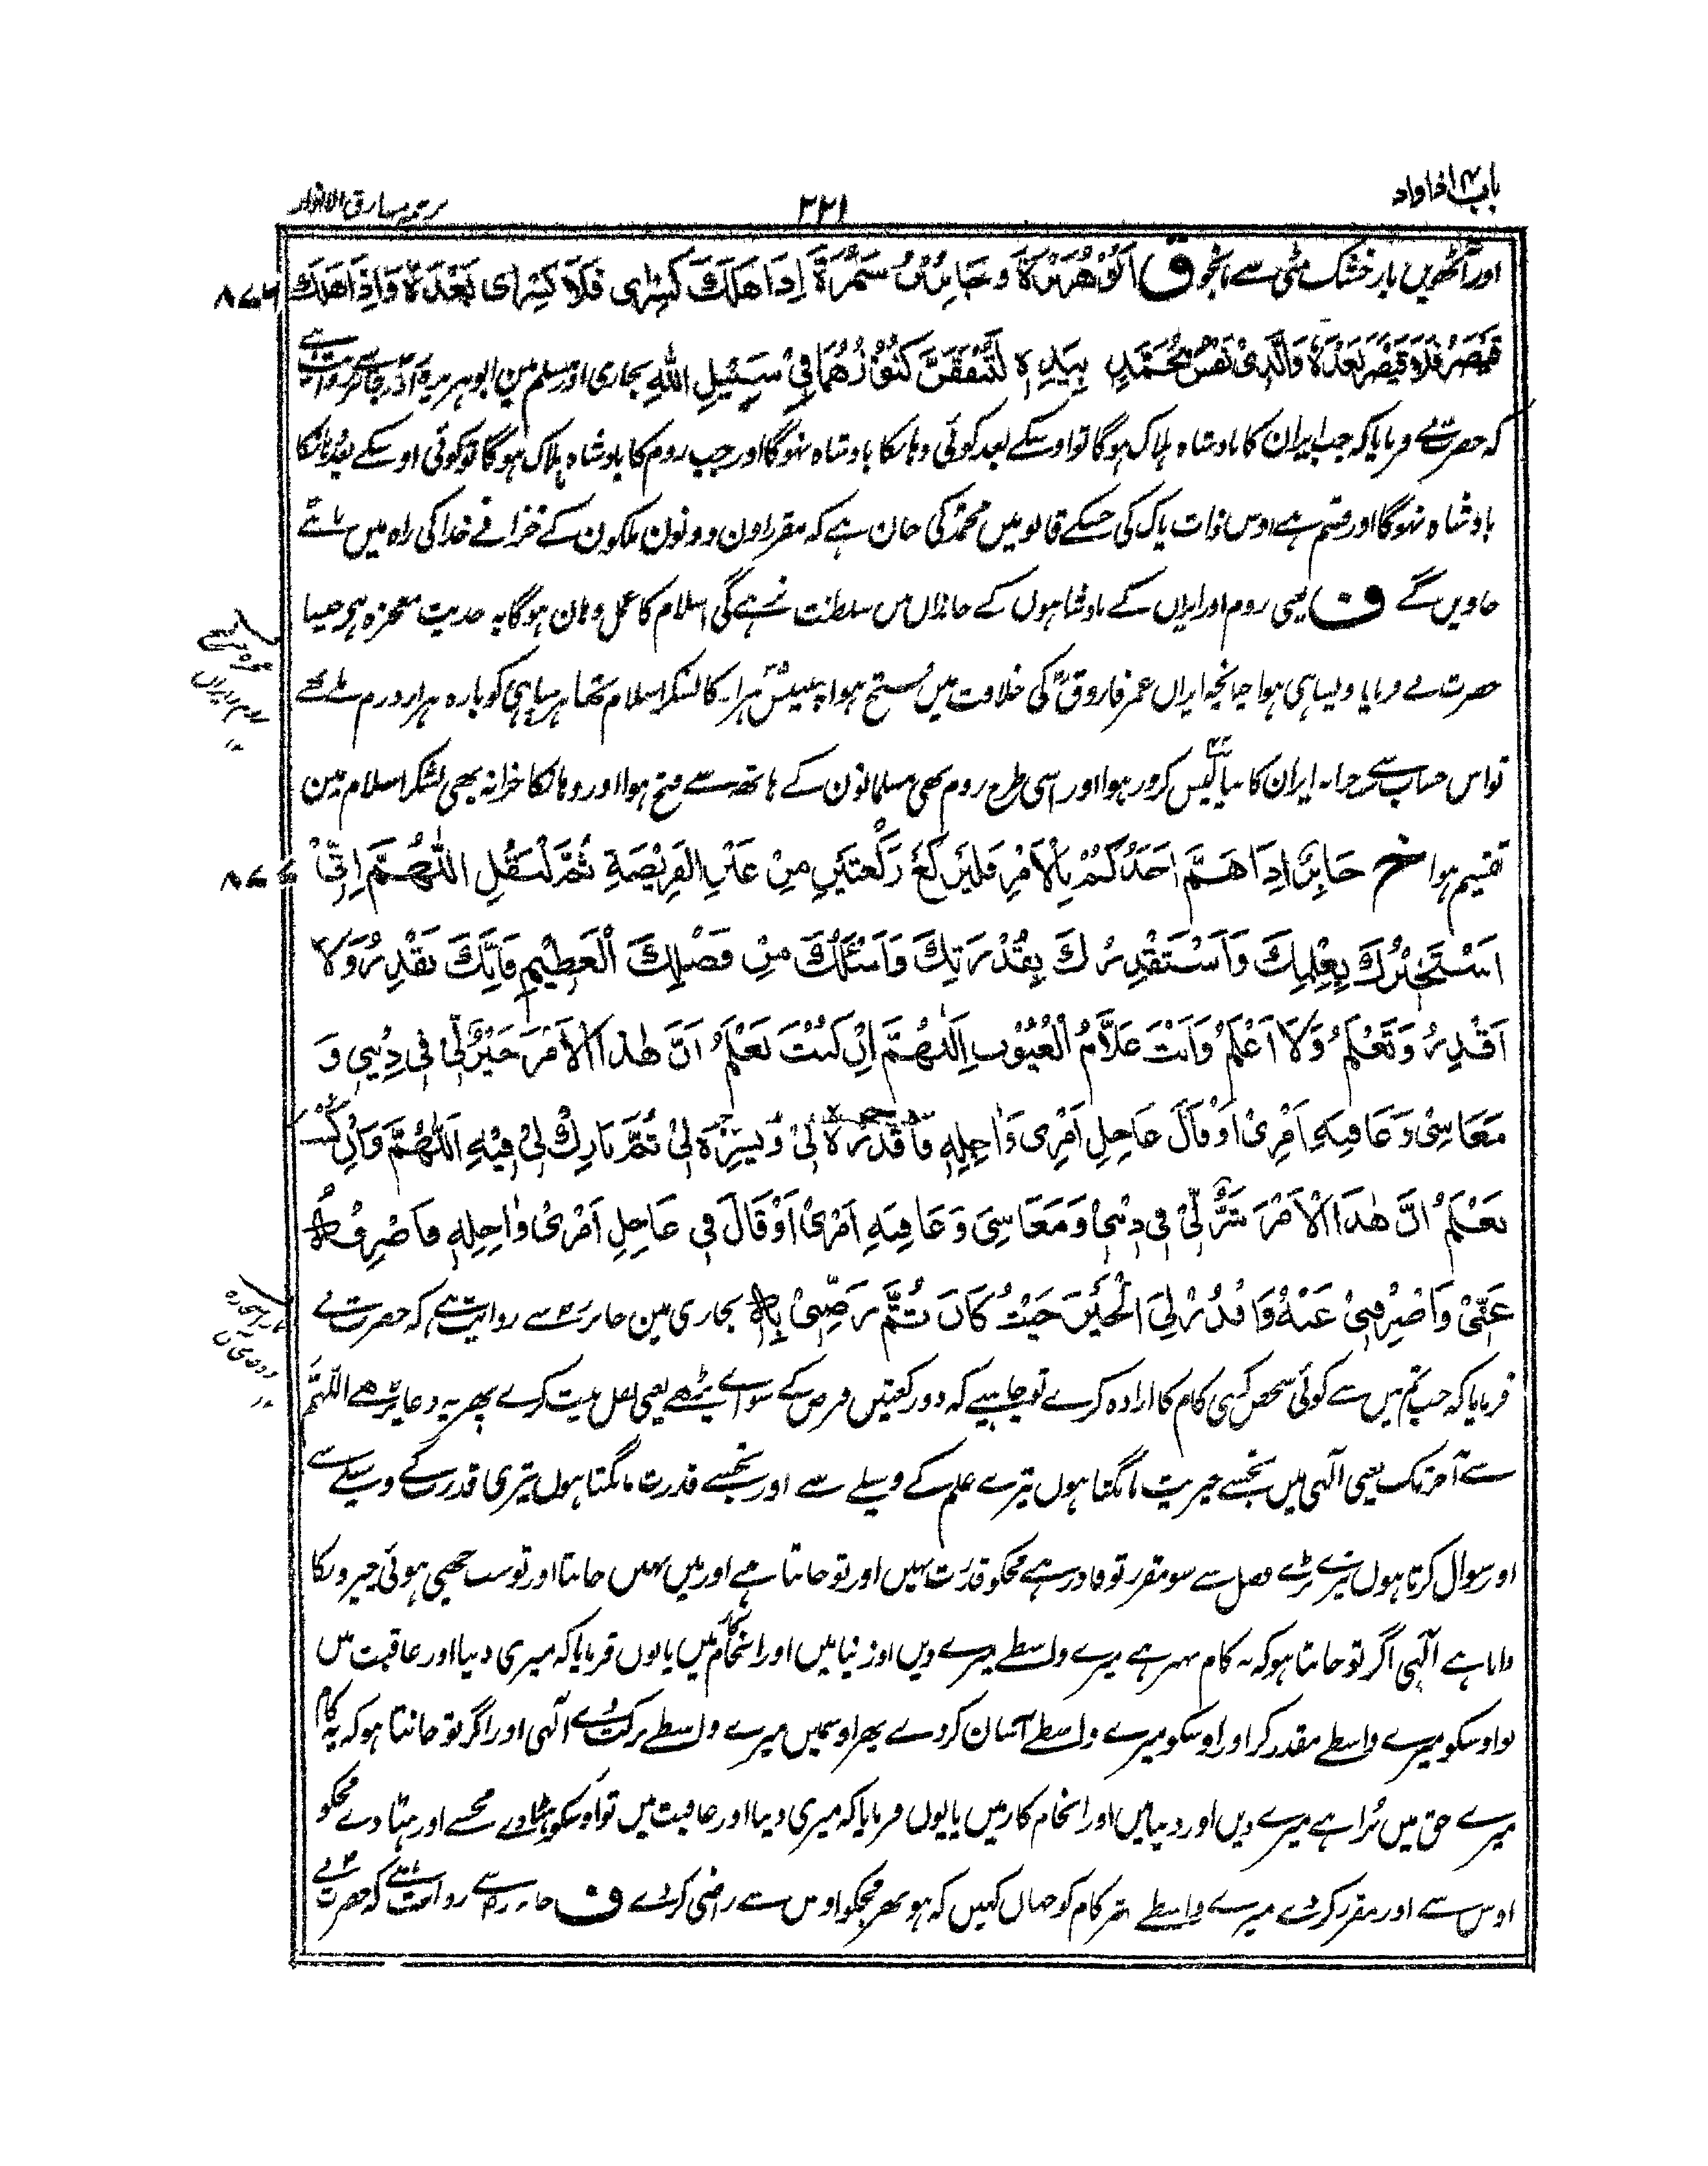 باب ۴ اذا واد
۲۲۱
ترجمہ مشارق الانوار
اور آٹھویں بار خشک مٹی سے مانجو ق اَبُوْ هُرَيْرَةَ وَجَابِرُ بْنُ سَمُرَةَ اِذَا هَلَكَ كِسْرٰى فَلَا كِسْرٰى بَعْدَهٗ وَاِذَا هَلَكَ
۸۷۶
قَيْصَرُ فَلَا قَيْصَرَ بَعْدَهٗ وَالَّذِىْ نَفْسُ مُحَمَّدٍ بِيَدِهٖ لَتُنْفَقَنَّ كُنُوْزُهُمَا فِىْ سَبِيْلِ اللّٰهِ بخاری اور مسلم مین ابو ہریرہ اور جابر سے روایت ہے
کہ حضرت نے فرمایا کہ جب ایران کا بادشاہ ہلاک ہوگا تو اوسکے بعد کوئی وہانکا بادشاہ نہوگا اور جب روم کا بادشاہ ہلاک ہوگا تو کوئی اوسکے بعد وہانکا
بادشاہ نہوگا اور قسم ہے اوس ذات پاک کی جسکے قابو میں محمد کی جان ہے کہ مقرر اون دونون ملکون کے خزانے خدا کی راہ میں بانٹے
جاویں گے ف یعنی روم اور ایران کے بادشاہوں کے خاندان میں سلطنت نہ رہے گی اسلام کا عمل وہان ہوگا یہ حدیث معجزہ ہی جیسا
حضرت نے فرمایا ویسا ہی ہوا چنانچہ ایران عمر فاروق کی خلافت میں فتح ہوا پینتیس ہزار کا لشکر اسلام تھا ہر سپاہی کو بارہ ہزار درم ملے تھے
تو اس حساب سے خزانہ ایران کا بیالیس کرور ہوا اور اسی طرح روم بھی مسلمانون کے ہاتھ سے فتح ہوا اور وہانکا خزانہ بھی لشکر اسلام مین
تقسیم ہوا خ جَابِرٌ اِذَا هَمَّ اَحَدُكُمْ بِالْاَمْرِ فَلْيَرْكَعْ رَكْعَتَيْنِ مِنْ غَيْرِ الْفَرِيْضَةِ ثُمَّ لْيَقُلِ اللّٰهُمَّ اِنِّىْ
۸۷۷
اَسْتَخِيْرُكَ بِعِلْمِكَ وَاَسْتَقْدِرُكَ بِقُدْرَتِكَ وَاَسْئَلُكَ مِنْ فَضْلِكَ الْعَظِيْمِ فَاِنَّكَ تَقْدِرُ وَلَا
اَقْدِرُ وَتَعْلَمُ وَلَا اَعْلَمُ وَاَنْتَ عَلَّامُ الْغُيُوْبِ اَللّٰهُمَّ اِنْ كُنْتَ تَعْلَمُ اَنَّ هٰذَا الْاَمْرَ خَيْرٌ لِّىْ فِىْ دِيْنِىْ وَ
مَعَاشِىْ وَعَاقِبَةِ اَمْرِىْ اَوْ قَالَ عَاجِلِ اَمْرِىْ وَاٰجِلِهٖ فَاقْدُرْهُ لِىْ وَيَسِّرْهُ لِىْ ثُمَّ بَارِكْ لِىْ فِيْهِ اَللّٰهُمَّ وَاِنْ كُنْتَ
تَعْلَمُ اَنَّ هٰذَا الْاَمْرَ شَرٌّ لِّىْ فِىْ دِيْنِىْ وَمَعَاشِىْ وَعَاقِبَةِ اَمْرِىْ اَوْ قَالَ فِىْ عَاجِلِ اَمْرِىْ وَاٰجِلِهٖ فَاصْرِفْهُ
عَنِّىْ وَاصْرِفْنِىْ عَنْهُ وَاقْدُرْ لِىَ الْخَيْرَ حَيْثُ كَانَ ثُمَّ رَضِّنِىْ بِهٖ بخاری مین جابر سے روایت ہے کہ حضرت نے
فرمایا کہ جب تم میں سے کوئی شخص کسی کام کا ارادہ کرے تو چاہیے کہ دو رکعتیں فرض کے سواے پڑھے یعنی نفل نیت کرے پھر یہ دعا پڑھے اللہم
سے آخر تک یعنی الٰہی میں تجھسے خیریت مانگتا ہوں تیرے علم کے وسیلے سے اور تجھسے قدرت مانگتا ہوں تیری قدرت کے وسیلے سے
اور سوال کرتا ہوں تیرے بڑے فضل سے سو مقرر تو قادر ہے مجکو قدرت نہیں اور تو جانتا ہے اور میں نہیں جانتا اور تو سب چھپی ہوئی چیزونکا
دانا ہے الٰہی اگر تو جانتا ہو کہ یہ کام بہتر ہے میرے واسطے میرے دین اور دنیا میں اور انجام کار میں یا یوں فرمایا کہ میری دنیا اور عاقبت میں
تو اوسکو میرے واسطے مقدر کر اور اوسکو میرے واسطے آسان کردے پھر اوسمیں میرے واسطے برکت دے الٰہی اور اگر تو جانتا ہو کہ یہ کام
میرے حق میں بُرا ہے میرے دین اور دنیا میں اور انجام کار میں یا یوں فرمایا کہ میری دنیا اور عاقبت میں تو اوسکو ہٹا دے مجھسے اور ہٹا دے مجکو
اوس سے اور مقرر کردے میرے واسطے بہتر کام کو جہاں کہیں کہ ہو پھر مجکو اوس سے راضی کردے ف جابر سے روایت ہے کہ حضرت نے